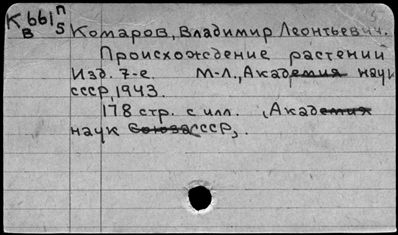 К661 п
в 5
Комаров, Владимир Леонтьевич.
Происхождение растений
Изд. 7-е. М-Л., Академия наук
СССР, 1943.
178 стр. с илл. (Академия
наук Союза ССР).